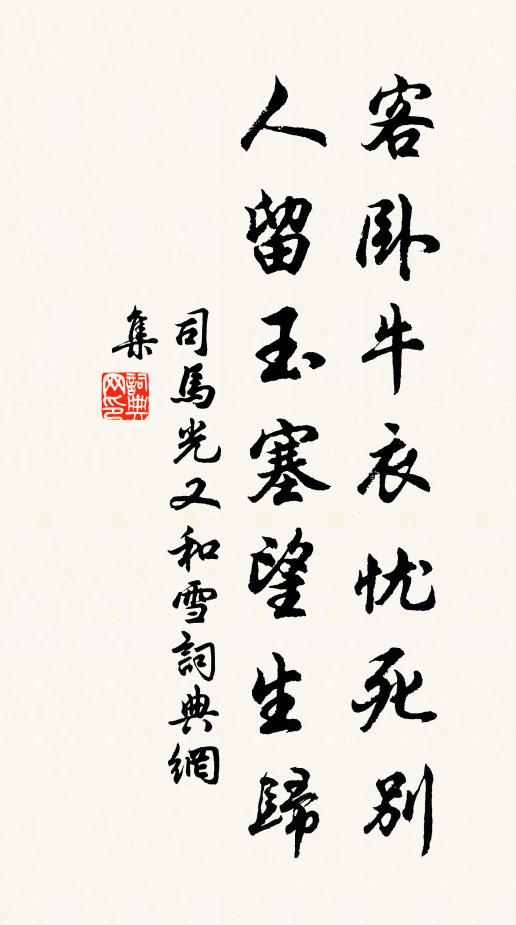 客卧牛衣忧死别
人留玉塞望生歸
司馬光又和雪詞典網
集
詞典网印